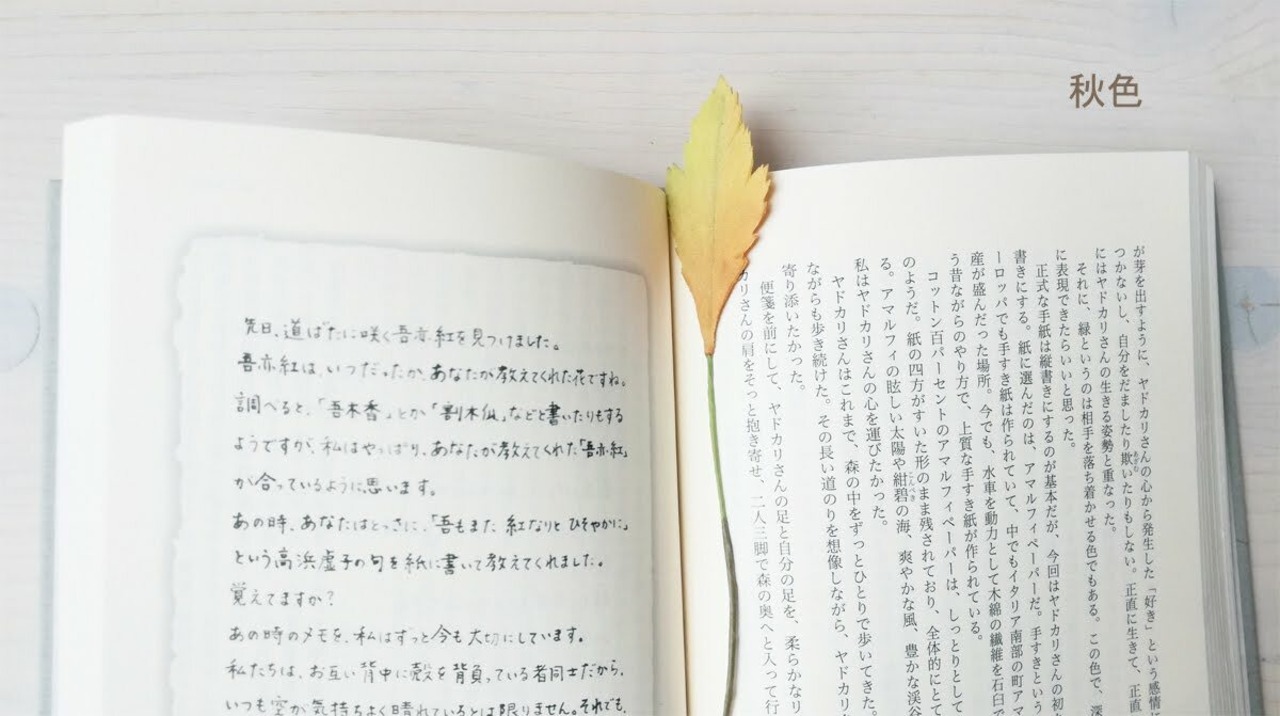 秋色
先日、道ばたに咲く吾亦紅を見つけました。
吾亦紅は、いつだったか、あなたが教えてくれた花ですね。
調べると、「吾木香」とか「割木瓜」などと書いたりもする
ようですが、私はやっぱり、あなたが教えてくれた「吾亦紅」
が合っているように思います。
あの時、あなたはとっさに、「吾もまた 紅なりと ひそやかに」
という高浜虚子の句を紙に書いて教えてくれました。
覚えてますか?
あの時のメモを、私はずっと今も大切にしています。
私たちは、お互い背中に殻を背負っている者同士だから、
いつも空が気持ちよく晴れているとは限りません。それでも、
が芽を出すように、ヤドカリさんの心から発生した「好き」という感情に
つかないし、自分をだましたり欺いたりもしない。正直に生きて、正直
にはヤドカリさんの生きる姿勢と重なった。
それに、緑というのは相手を落ち着かせる色でもある。この色で、深
に表現できたらいいと思った。
正式な手紙は縦書きにするのが基本だが、今回はヤドカリさんの初
書きにする。紙に選んだのは、アマルフィペーパーだ。手すきという
ーロッパでも手すき紙は作られていて、中でもイタリア南部の町アマ
産が盛んだった場所。今でも、水車を動力として木綿の繊維を石臼で
う昔ながらのやり方で、上質な手すき紙が作られている。
コットン百パーセントのアマルフィペーパーは、しっとりとして
のようだ。紙の四方がすいた形のまま残されており、全体的にとて
る。アマルフィの眩しい太陽や紺碧の海、爽やかな風、豊かな渓谷
私はヤドカリさんの心を運びたかった。
ヤドカリさんはこれまで、森の中をずっとひとりで歩いてきた。
ながらも歩き続けた。その長い道のりを想像しながら、ヤドカリ
寄り添いたかった。
便箋を前にして、ヤドカリさんの足と自分の足を、柔らかなリ
カリさんの肩をそっと抱き寄せ、二人三脚で森の奥へと入って行